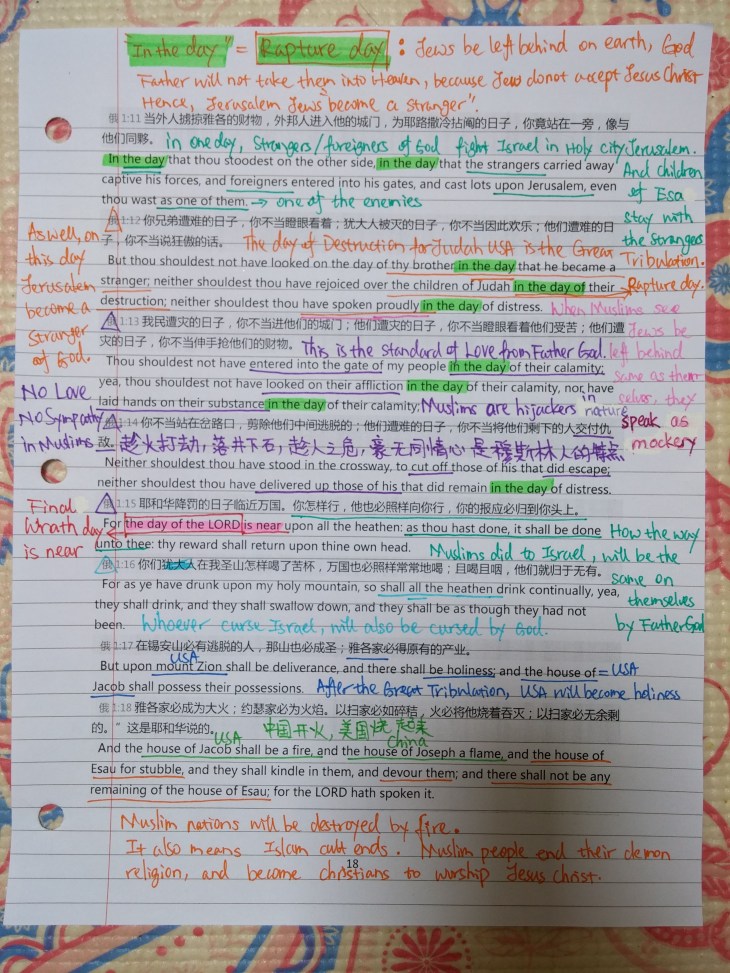 "In the day" = Rapture day : Jews be left behind on earth, God
Father will not take them into Heaven, because Jew donot accept Jesus Christ
Hence, Jerusalem Jews "become a stranger".
俄 1:11 当外人掳掠雅各的财物，外邦人进入他的城门，为耶路撒冷拈阄的日子，你竟站在一旁，像与
他们同夥。 in one day, Strangers/foreigners of God fight Israel in Holy city Jerusalem.
In the day that thou stoodest on the other side, in the day that the strangers carried away
captive his forces, and foreigners entered into his gates, and cast lots upon Jerusalem, even
thou wast as one of them. → one of the enemies
And children
of Esa
stay with
the strangers
俄 1:12 你兄弟遭难的日子，你不当瞪眼看着；犹大人被灭的日子，你不当因此欢乐；他们遭难的日
子，你不当说狂傲的话。 The day of Destruction for Judah USA is the Great Tribulation.
But thou shouldest not have looked on the day of thy brother in the day that he became a
stranger; neither shouldest thou have rejoiced over the children of Judah in the day of their → Rapture day.
destruction; neither shouldest thou have spoken proudly in the day of distress.
As well, on
this day
Jerusalem
become a
stranger
of God.
When Muslims see
Jews be
left behind
same as them
selves, they
speak as
mockery
俄 1:13 我民遭灾的日子，你不当进他们的城门；他们遭灾的日子，你不当瞪眼看着他们受苦；他们遭
灾的日子，你不当伸手抢他们的财物。 This is the standard of Love from Father God.
Thou shouldest not have entered into the gate of my people in the day of their calamity;
yea, thou shouldest not have looked on their affliction in the day of their calamity, nor have
laid hands on their substance in the day of their calamity; Muslims are hijackers in nature
No Love
No Sympathy
in Muslims
俄 1:14 你不当站在岔路口，剪除他们中间逃脱的；他们遭难的日子，你不当将他们剩下的人交付仇
敌。 趁火打劫，落井下石，趁人之危，豪无同情心是穆斯林人的特点
Neither shouldest thou have stood in the crossway, to cut off those of his that did escape;
neither shouldest thou have delivered up those of his that did remain in the day of distress.
俄 1:15 耶和华降罚的日子临近万国。你怎样行，他也必照样向你行，你的报应必归到你头上。
For the day of the LORD is near upon all the heathen: as thou hast done, it shall be done
unto thee: thy reward shall return upon thine own head.
Final
Wrath day
is near
How the way
Muslims did to Israel, will be the
same on
themselves
by FatherGod
俄 1:16 你们犹大人在我圣山怎样喝了苦杯，万国也必照样常常地喝；且喝且咽，他们就归于无有。
For as ye have drunk upon my holy mountain, so shall all the heathen drink continually, yea,
they shall drink, and they shall swallow down, and they shall be as though they had not
been. Whoever curse Israel, will also be cursed by God.
俄 1:17 在锡安山必有逃脱的人，那山也必成圣；雅各家必得原有的产业。
USA
But upon mount Zion shall be deliverance, and there shall be holiness; and the house of = USA
Jacob shall possess their possessions. After the Great Tribulation, USA will become holiness
俄 1:18 雅各家必成为大火；约瑟家必为火焰。以扫家必如碎秸，火必将他烧着吞灭；以扫家必无余剩
的。" 这是耶和华说的。 中国开火，美国烧起来
USA China
And the house of Jacob shall be a fire, and the house of Joseph a flame, and the house of
Esau for stubble, and they shall kindle in them, and devour them; and there shall not be any
remaining of the house of Esau; for the LORD hath spoken it.
Muslim nations will be destroyed by fire.
It also means Islam cult ends. Muslim people end their demon
18
religion, and become christians to worship Jesus Christ.